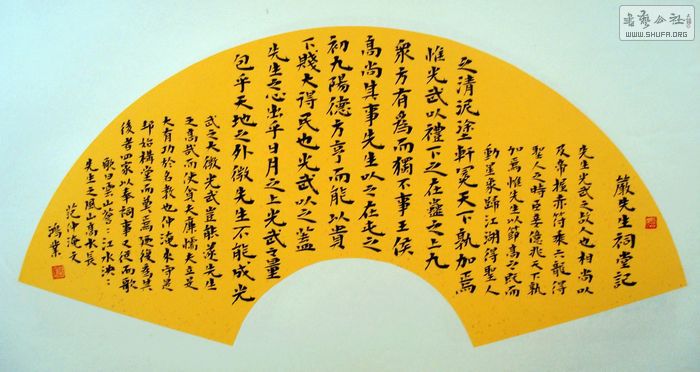 嚴先生祠堂記
先生光武之故人也相尚以
及帝握赤符乘六龍得
聖人之時臣妾億兆天下孰
加焉惟先生以節高之既而
動星象歸江湖得聖人
之清泥塗軒冕天下孰加焉
惟光武以禮下之在蠱之上九
眾方有為而獨不事王侯
高尚其事先生以之在屯之
初九陽德方亨而能以貴
下賤大得民也光武以之蓋
先生之心出乎日月之上光武之量
包乎天地之外微先生不能成光
武之大微光武豈能遂先生
之高哉而使貪夫廉懦夫立是
大有功於名教也仲淹來守是
邦始構堂而奠焉迺復為其
後者四家以奉祠事又從而歌
歌曰雲山蒼〻江水泱〻
先生之風山高水長
范仲淹文
鴻業
书艺公社
WWW.SHUFA.ORG